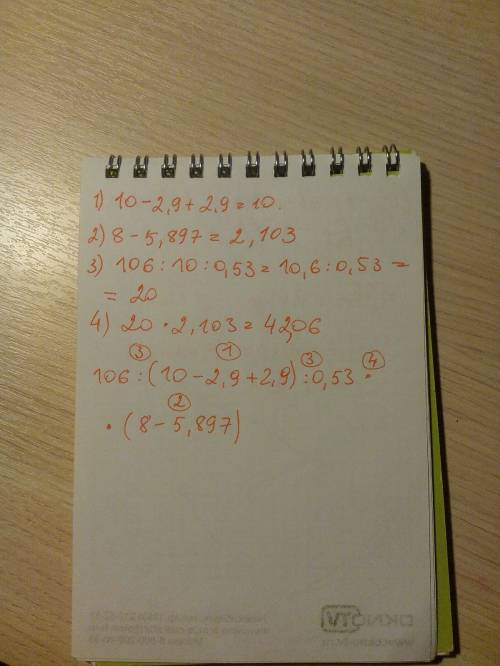 1) 10 - 2,9 + 2,9 = 10.
2) 8 - 5,897 = 2,103
3) 106 : 10 : 0,53 = 10,6 : 0,53 =
= 20
4) 20 · 2,103 = 42,06
③ ① ③ ④
106 : (10 - 2,9 + 2,9) : 0,53 ·
②
· (8 - 5,897)
OKNO TV